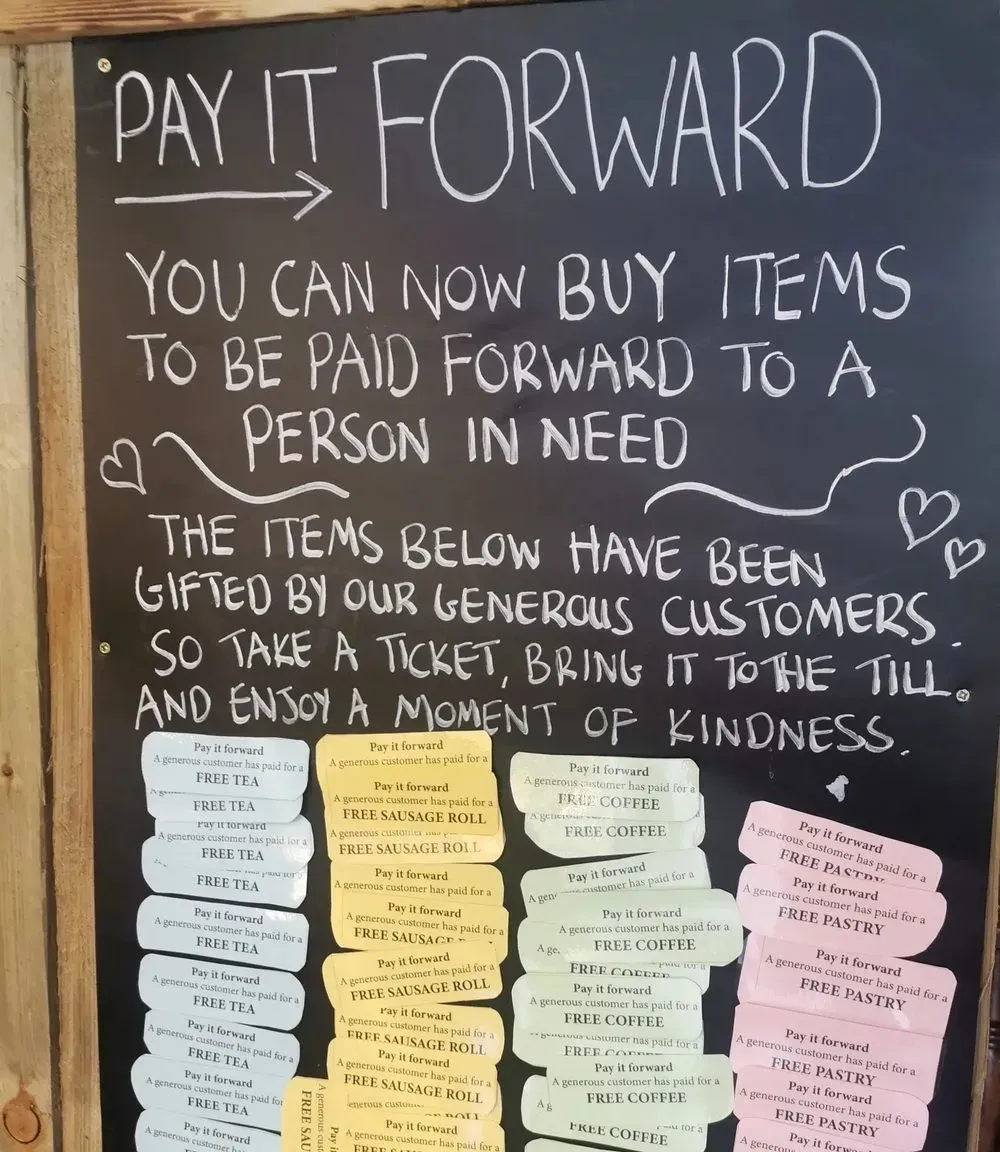 PAY IT FORWARD
YOU CAN NOW BUY ITEMS
TO BE PAID FORWARD TO A
PERSON IN NEED
THE ITEMS BELOW HAVE BEEN
GIFTED BY OUR GENEROUS CUSTOMERS.
SO TAKE A TICKET, BRING IT TO THE TILL
AND ENJOY A MOMENT OF KINDNESS.
Pay it forward
A generous customer has paid for a
FREE TEA
FREE TEA
Pay it forward
A generous customer has paid for a
FREE TEA
FREE TEA
Pay it forward
A generous customer has paid for a
FREE TEA
Pay it forward
A generous customer has paid for a
FREE TEA
Pay it forward
A generous customer has paid for a
FREE TEA
Pay it forward
A generous customer has paid for a
FREE TEA
Pay it forward
Pay it forward
A generous customer has paid for a
Pay it forward
A generous customer has paid for a
FREE SAUSAGE ROLL
A generous customer has paid for a
FREE SAUSAGE ROLL
Pay it forward
A generous customer has paid for a
Pay it forward
A generous customer has paid for a
FREE SAUSAGE
Pay it forward
A generous customer has paid for a
FREE SAUSAGE ROLL
Pay it forward
A generous customer has paid for a
FREE SAUSAGE ROLL
Pay it forward
A generous customer has paid for a
FREE SAUSAGE ROLL
ROLL
Pay it forward
A generous customer has paid for a
A generous
FREE SAU
Pay it
Pay it forward
A generous customer has paid for a
FREE COFFEE
A generous
FREE COFFEE
Pay it forward
customer has paid for a
Pay it forward
A generous customer has paid for a
FREE COFFEE
FREE COFFEE
Pay it forward
A generous customer has paid for a
FREE COFFEE
A generous customer has paid for a
FREE COFFEE
Pay it forward
A generous customer has paid for a
FREE COFFEE
FREE COFFEE
Pay it forward
A generous customer has paid for a
FREE PASTRY
Pay it forward
A generous customer has paid for a
FREE PASTRY
Pay it forward
A generous customer has paid for a
FREE PASTRY
Pay it forward
A generous customer has paid for a
FREE PASTRY
Pay it forward
A generous customer has paid for a
FREE PASTRY
Pay it forward
A generous customer has paid for a